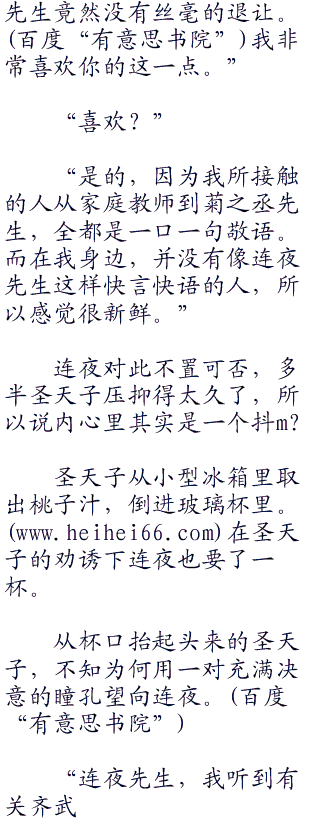 先生竟然没有丝毫的退让。
(百度“有意思书院”)我非
常喜欢你的这一点。”
“喜欢？”
“是的，因为我所接触
的人从家庭教师到菊之丞先
生，全都是一口一句敬语。
而在我身边，并没有像连夜
先生这样快言快语的人，所
以感觉很新鲜。”
连夜对此不置可否，多
半圣天子压抑得太久了，所
以说内心里其实是一个抖m?
圣天子从小型冰箱里取
出桃子汁，倒进玻璃杯里。
(www.heihei66.com)在圣天
子的劝诱下连夜也要了一
杯。
从杯口抬起头来的圣天
子，不知为何用一对充满决
意的瞳孔望向连夜。(百度
“有意思书院”)
“连夜先生，我听到有
关齐武